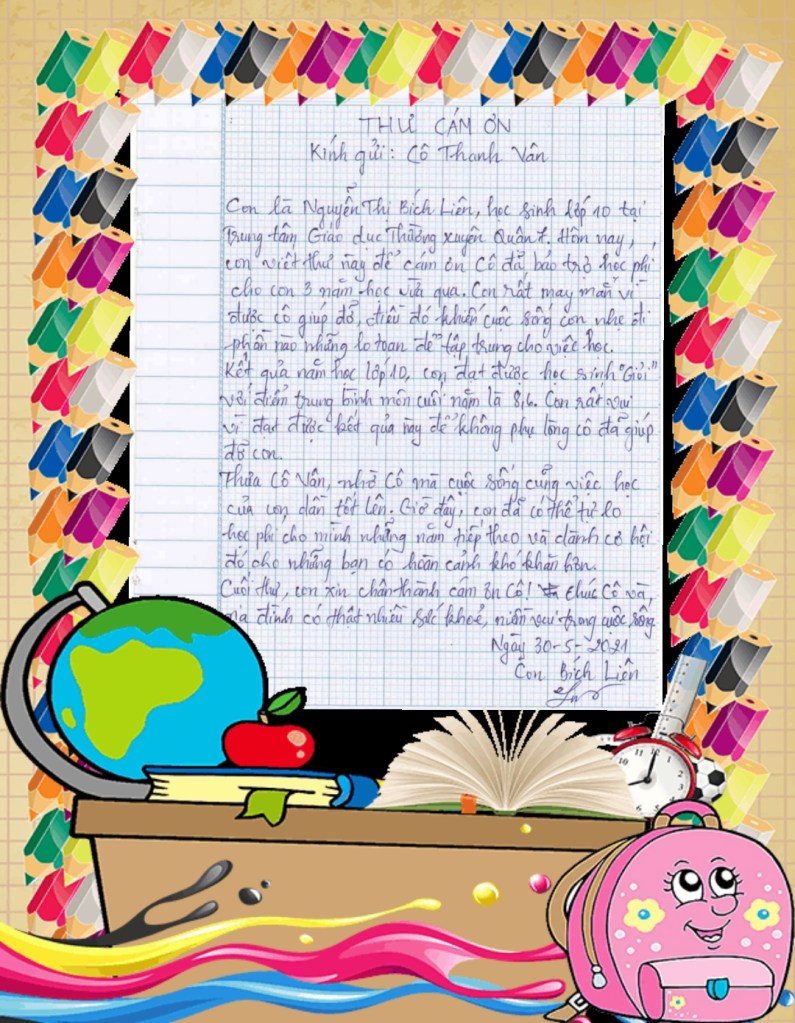 THƯ CÁM ƠN
Kính gửi: Cô Thanh Vân
Con là Nguyễn Thị Bích Liên, học sinh lớp 10 tại
Trung tâm Giáo dục Thường xuyên Quận 7. Hôm nay,
con viết thư này để cám ơn Cô đã bảo trợ học phí
cho con 3 năm học vừa qua. Con rất may mắn vì
được cô giúp đỡ, điều đó khiến cuộc sống con nhẹ đi
phần nào những lo toan để tập trung cho việc học.
Kết quả năm học lớp 10, con đạt được học sinh "Giỏi"
với điểm trung bình môn cuối năm là 8,6. Con rất vui
vì đạt được kết quả này để không phụ lòng cô đã giúp
đỡ con.
Thưa Cô Vân, nhờ Cô mà cuộc sống cùng việc học
của con dần tốt lên. Giờ đây, con đã có thể tự lo
học phí cho mình những năm tiếp theo và dành cơ hội
đó cho những bạn có hoàn cảnh khó khăn hơn.
Cuối thư, con xin chân thành cám ơn Cô! Chúc Cô và
gia đình có thật nhiều sức khoẻ, niềm vui trong cuộc sống.
Ngày 30-5-2021
Con Bích Liên